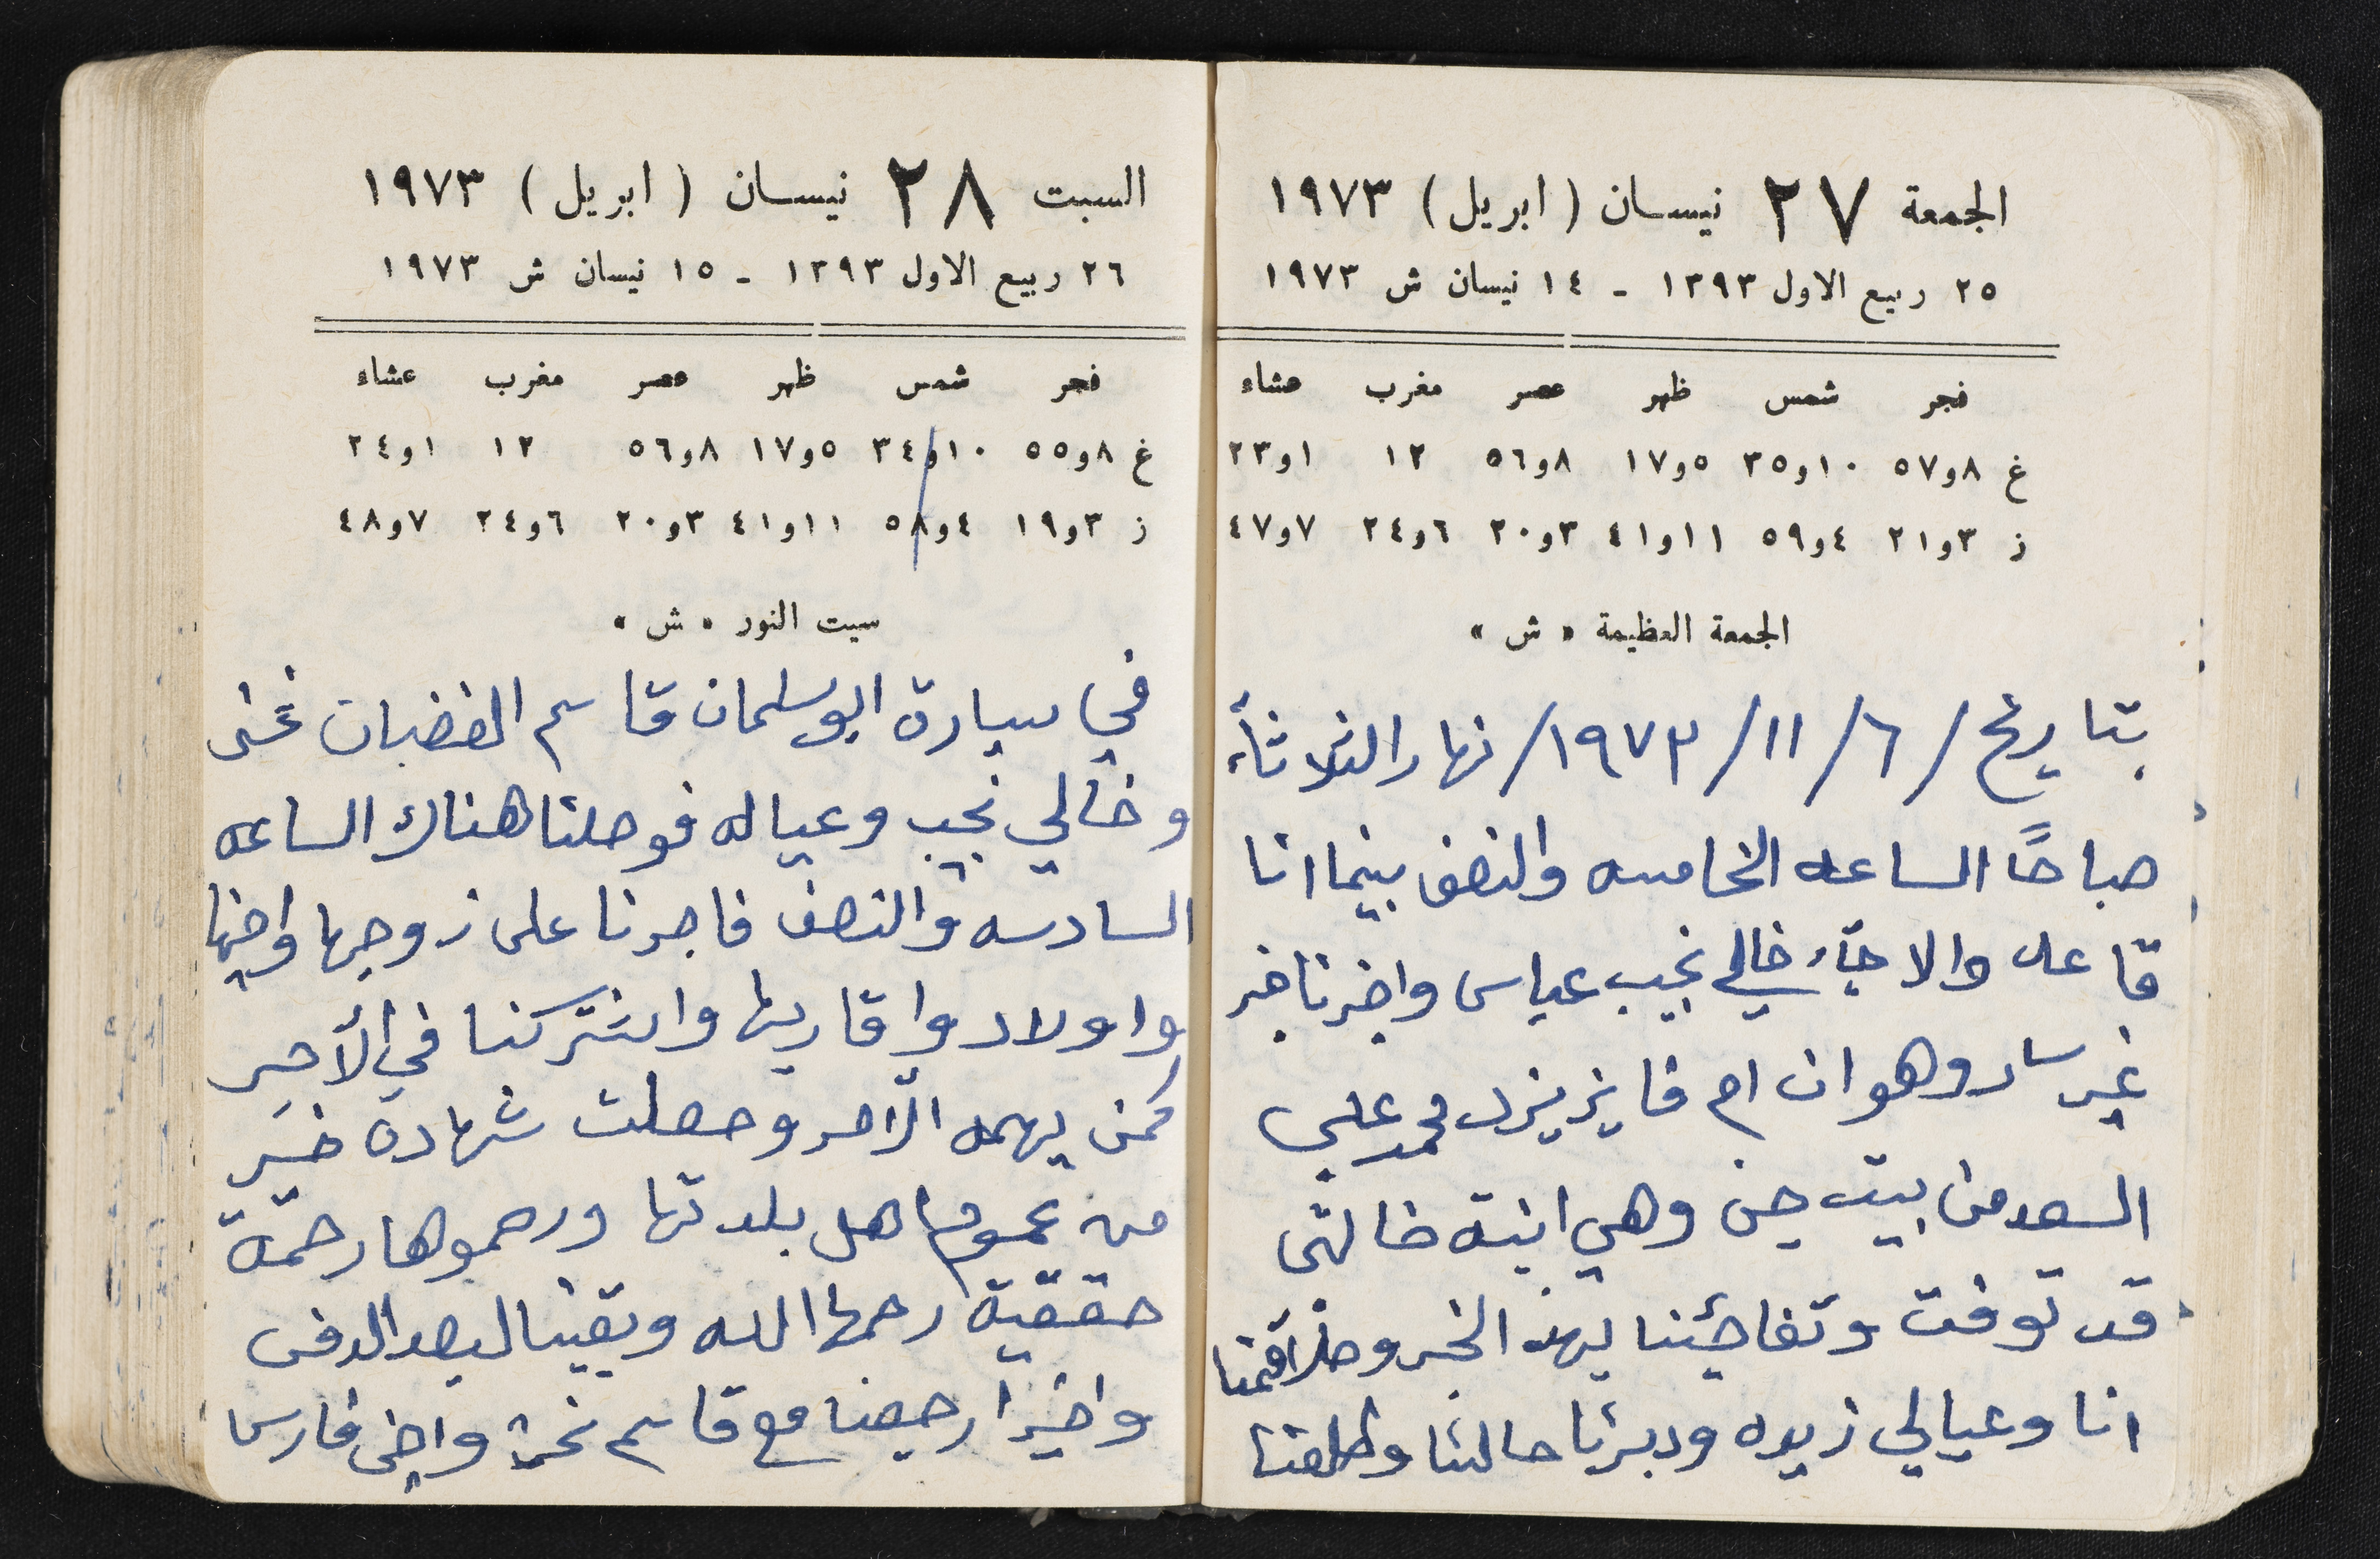 الجمعة ٢٧ نيسان (ابريل) ١٩٧٣
٢٥ ربيع الاول ١٣٩٣ - ١٤ نيسان ش ١٩٧٣
فجر شمس ظهر عصر مغرب عشاء
غ ٨و٥٧ ١٠و٣٥ ٥و١٧ ٨و٥٦ ١٢ ١و٢٣
ز ٣و٢١ ٤و٥٩ ١١و٤١ ٣و٢٠ ٦و٢٤ ٧و٤٧
الجمعة العظيمة « ش »
بتاريخ /٦/١١/١٩٧٣/ نهار الثلاثاء
صباحًا الساعه الخامسه والنصف بينما انا
قاعد والا جاء خالي نجيب عباس واخبرنا خبر
غير سار وهو ان ام فايز يزبك محمد علي
السعد من بيت جن وهي ابنة خالتي
قد توفت وتفاجئنا بهذا الخبر وحلا قمنا
انا وعيالي زيده ودبرنا حالنا وطلعنا
السبت ٢٨ نيسان (ابريل) ١٩٧٣
٢٦ ربيع الاول ١٣٩٣ - ١٥ نيسان ش ١٩٧٣
فجر شمس ظهر عصر مغرب عشاء
غ ٨و٥٥ ١٠و٣٤ ٥و١٧ ٨و٥٦ ١٢ ١و٢٤
ز ٣و١٩ ٤و٥٨ ١١و٤١ ٣و٢٠ ٦و٢٤ ٧و٤٨
سبت النور « ش »
في سيارة ابو سلمان قاسم الغضبان نحنى
وخالي نجيب وعياله فوصلنا هناك الساعه
السادسه والنصف فاجرنا على زوجها واخيها
واولاد واقاربها واشتركنا في الأجر
كمن يهمه الأمر وحصلت شهادة خير
من عموم اهل بلدتها ورحموها رحمة
حقيقية رحمها الله وبقينا لبعد الدفن
واخيرًا رجعنا مع قاسم نحنى واخي فارس